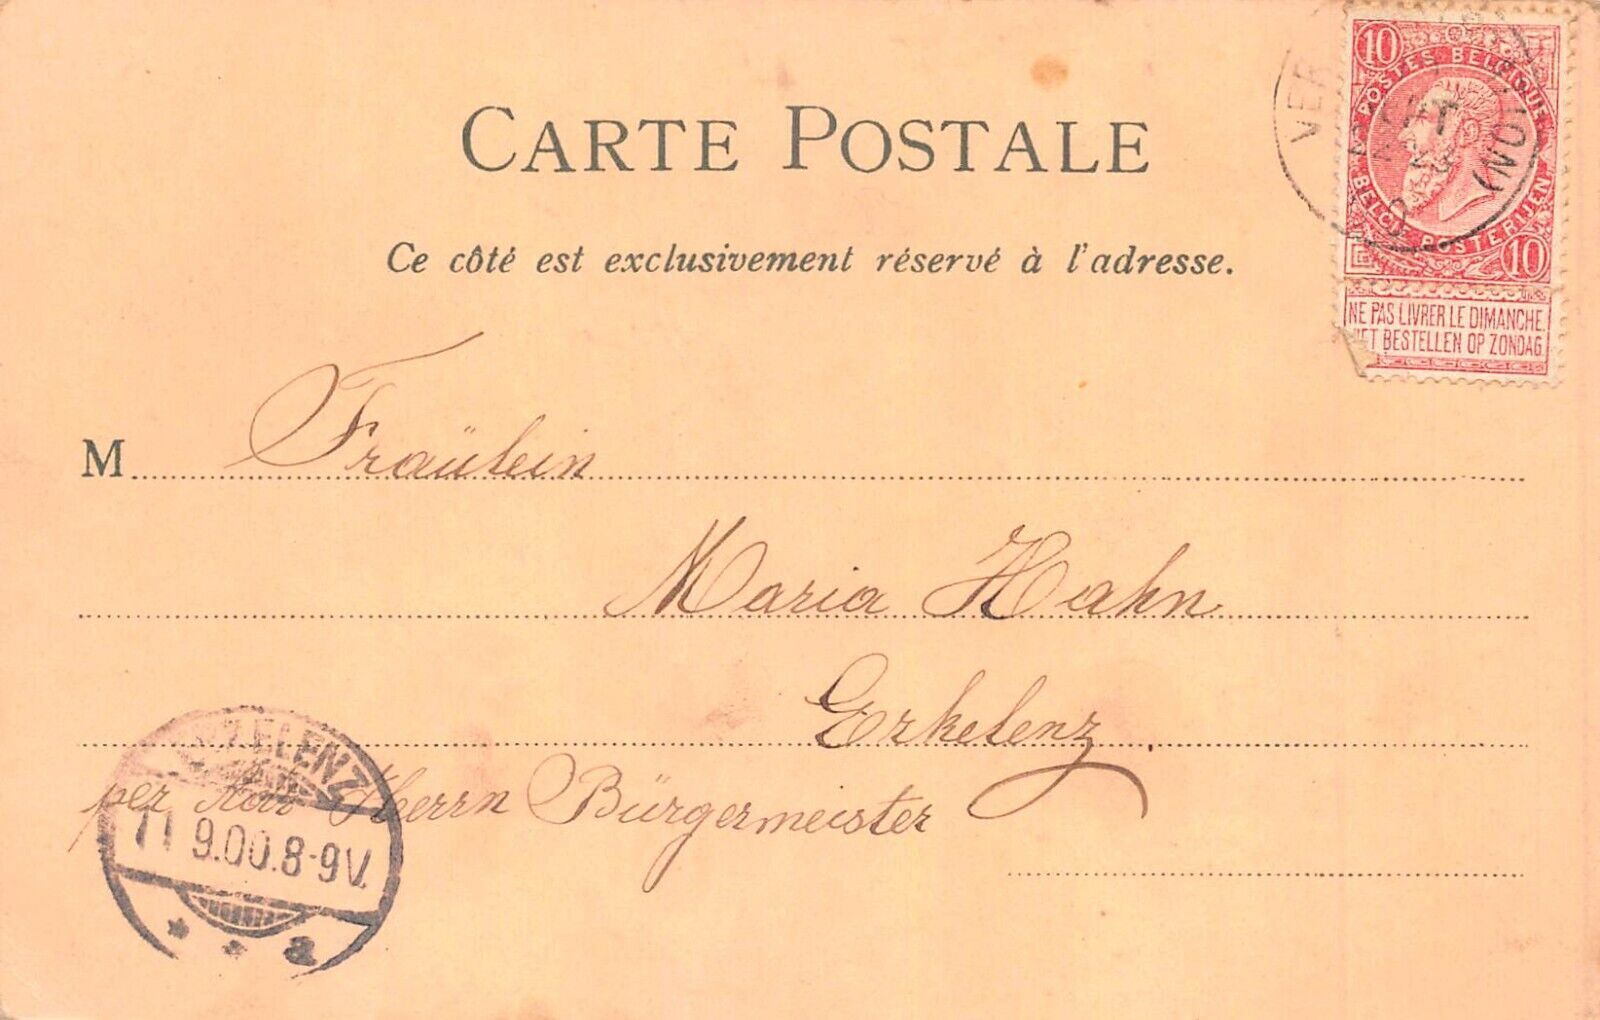 CARTE POSTALE
Ce côté est exclusivement réservé à l'adresse.
10 10
POSTES BELGIQUE
BELGIË POSTERIJEN
10
NE PAS LIVRER LE DIMANCHE
NIET BESTELLEN OP ZONDAG
M Fraülein
Maria Hahn
Erkelenz
per Herrn Bürgermeister
11 9.00.8-9V.
a